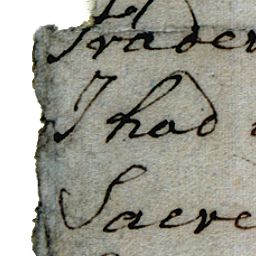 Trader
I had
Sacre